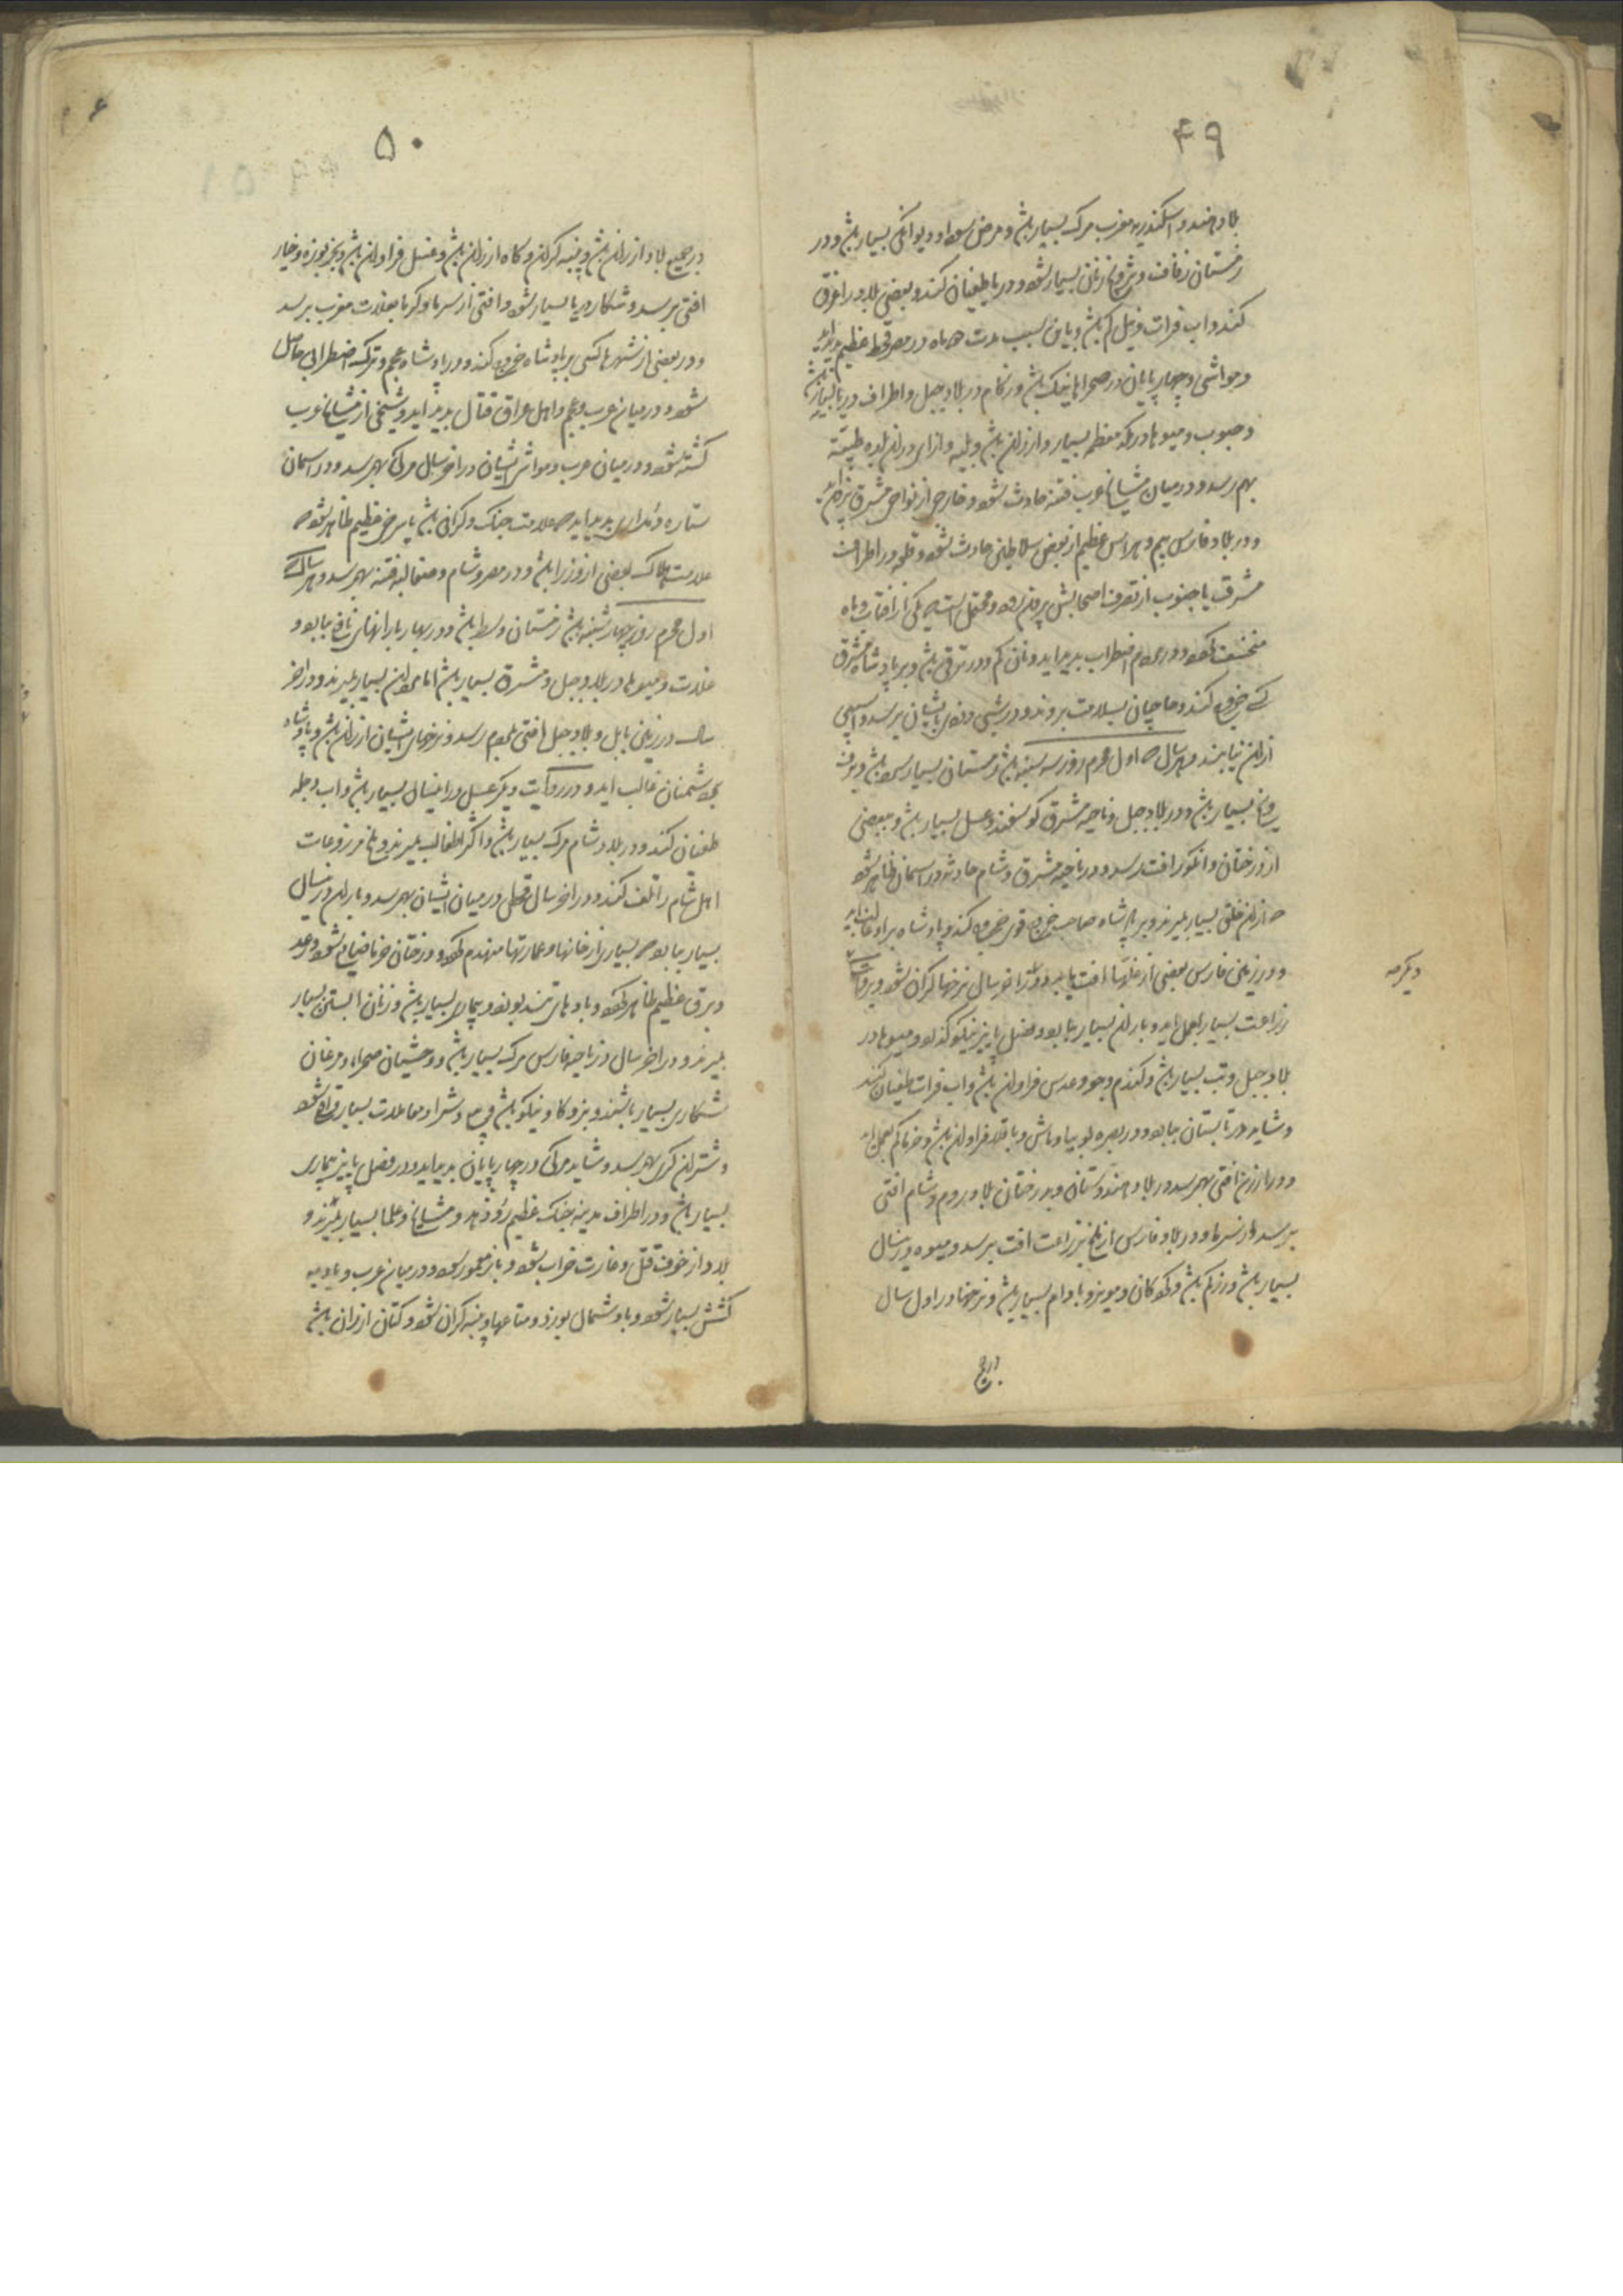 ۴۹
بلاد هند و اسکندریه مغرب مرک بسیار باشد و مرض سودا و دیوانکی بسیار باشد و در
زمستان زفاف و تزویج زنان بسیار شود و دریا طغیان کند و بعضی بلاد را غرق
کند و آب فرات و نیل کم باشد و باین سبب مدت ده ماه در مصر قحط عظیم پدید آید
و مواشی و چهار پایان در صحراها نیک باشد و زکام در بلاد جبل و اطراف دریا بسیار باشد
و حبوب و میوها در مکه معظمه بسیار و ارزان باشد و بلیه و آزاری در آن بلده طیبه
بهم رسد و در میان مشایخ عرب فتنه حادث شود و خارجی از نواحی مشرق بیرون آید
و در بلاد فارس بیم و هراس عظیم از بعضی سلاطین حادث شود و قلعه در اطراف
مشرق یا جنوب از تصرف اصحابش بیرون رود و محتمل است که یکی از آفتاب و ماه
منخسف شود و در مردم اضطراب پدید آید و نان کم و در ترقی باشد و بر پادشاه مشرق
کسی خروج کند و حاجیان بسلامت بروند و در شبی دزدی بایشان برسد و آسیبی
از آن نیابند و هر سال که اول محرم روز سه شنبه باشد زمستان بسیار سرد باشد و برف
و یخ بسیار باشد و در بلاد جبل و ناحیه مشرق کوسفند و عسل بسیار باشد و ببعضی
از درختان و انکور آفت رسد و در ناحیه مشرق و شام حادثه در آسمان ظاهر شود
که از آن خلق بسیار بمیرند و بر پادشاه صاحب خروج قوی خروج کند و پادشاه بر او غالب آید
و در زمین فارس بعضی از غلّها آفت یابند و در آخر سال نرخها کران شود و بروایت
دیگر که
زراعت بسیار بعمل آید و باران بسیار ببارد و فصل پاییز نیکو گذرد و میوها در
بلاد جبل و تب بسیار باشد و کندم و جو و عدس فراوان باشد و آب فرات طغیان کند
و شاید در تابستان ببارد و در بصره لوبیا و ماش و باقلا فراوان باشد و خرما کم بعمل آید
و در ارزن آفتی بهم رسد در بلاد هندوستان و بدرختان بلاد روم و شام آفتی
برسد از سرما و در بلاد فارس از ملخ بزراعت آفت برسد و میوه در آنسال
بسیار باشد و رزم کم باشد و کودکان و مویز و بادام بسیار باشد و نرخها در اول سال
در جمیع
۵۰
در جمیع بلاد ارزان باشد و پنبه کران و کاه ارزان باشد و عسل فراوان باشد و بخربوزه و خیار
آفتی برسد و شکار دریا بسیار شود و آفتی از سرما و کرما بغلات مغرب برسد
و در بعضی از شهرها کسی بر پادشاه خروج کند و در پادشاه عجم و ترک اضطرابی حاصل
شود و در میان عرب و عجم و اهل عراق قتال پدید آید و شیخی از مشایخ عرب
کشته شود و در میان عرب و مواشی ایشان در آخر سال مرکی بهم رسد و در آسمان
ستاره دنبداری پدید آید که علامت جنک و کرانی باشد یا سرخی عظیم ظاهر شود که
علامت هلاک بعضی از وزرا باشد و در مصر و شام و صقالبه فتنه بهم رسد و هر سالی که
اول محرم روز چهار شنبه باشد زمستان وسط باشد و در بهار بارانهای نافع ببارد و
غلات و میوها در بلاد جبل و مشرق بسیار باشد اما مردان بسیار بمیرند و در آخر
سال در زمین بابل و بلاد جبل آفتی بمردم رسد و نرخهای ایشان ارزان باشد و پادشاه
بر دشمنان غالب آید و در روایت دیکر عسل در اینسال بسیار باشد و آب دجله
طغیان کند و در بلاد شام مرک بسیار باشد و اکثر اطفال بمیرند و ملخ مزروعات
اهل شام را تلف کند و در آخر سال قحطی در میان ایشان بهم رسد و باران در آنسال
بسیار ببارد که بسیاری از خانها و عمارتها منهدم کردد و درختان خرما ضایع شود و رعد
و برق عظیم ظاهر کردد و بادهای تند بوزد و بیماری بسیار باشد و زنان آبستن بسیار
بمیرند و در آخر سال در ناحیه فارس مرک بسیار باشد و وحشیان صحراء و مرغان
شکاری بسیار باشند و بز و کاو نیکو باشد و بیع و شرا و معاملات بسیار واقع شود
و شتران کری بهم رسد و شاید مرکی در چهار پایان پدید آید و در فصل پاییز بیماری
بسیار باشد و در اطراف مدینه جنک عظیم رو دهد و مشایخ و علما بسیار بمیرند و
بلاد از خوف قتل و غارت خراب شود و باز معمور شود و در میان عرب و بادیه
کشش بسیار شود و باد شمال بوزد و متاعها و پنبه کران شود و کتان ارزان باشد